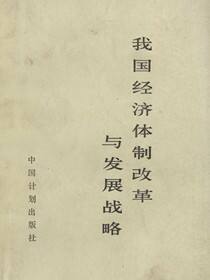 我国经济体制改革
与发展战略
中国计划出版社